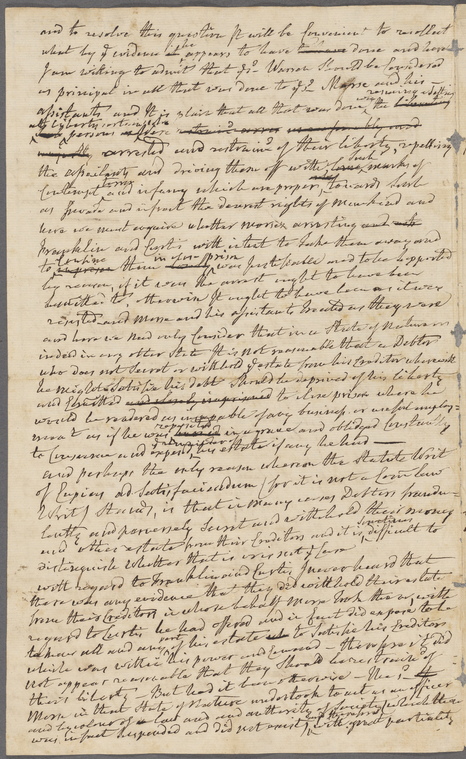 and to resolve this question It will be Convenient to recollect
what by ye evidence it appears to have been done and here
I am willing to admit that Jno. Warner Should be Considered
as principal in all that was done to Jno. Morse and his
assistants and It is clear that all that was done was rescuing & defending
persons arrested and restrained of their liberty, repelling
the assailants and driving those off with such marks of
Contempt and infamy which are proper towards such
as Invade and infract the dearest rights of Mankind and
here we must enquire whether Morses arresting
Franklin and Curtis with intent to take them away and
to Confine them in close prison was Justifiable and to be supported
by reason, if it was the arrest ought to have been
submitted to otherwise It ought to have been as it was
resisted and Morse and his assistants treated as they were
and here we need only Consider that in a State of nature or
indeed in any other State It is not reasonable that a Debtor
who does not Secret or withhold ye estate from his Creditor wherewith
he might Satisfie his debt Should be deprived of his liberty
and Confined to close prison where he
would be rendered as uncapable of any business or useful employ-
ment as if he was in a grave and obliged Constantly
to Consume and expend his estate if any he had —
and perhaps the only reason whereon the Statute Writ
of Capias ad Satisfaciendum (for it is not a Com: law
Writ) Stands, is that in many cases Debtors fraudu-
lently and perversely Secret and withhold their money
and other estate from their Creditors and it is sometimes difficult to
distinguish whether that is or is not ye Case
with regard to Franklin and Curtis I never heard that
there was any evidence that they did withhold their estate
from their Creditors in whose behalf Morse took them, with
regard to Curtis he had offered and in fact did expose to be
taken all and any of his estate to Satisfie his Creditors
which was within his power and Command — therefore it did
not appear reasonable that they Should be restrained of
their liberty — But had it been otherwise —
Morse in that State of Nature undertook to act as an officer
and by colour of law and authority of Society which then
was in fact Suspended and did not exist with great partiality